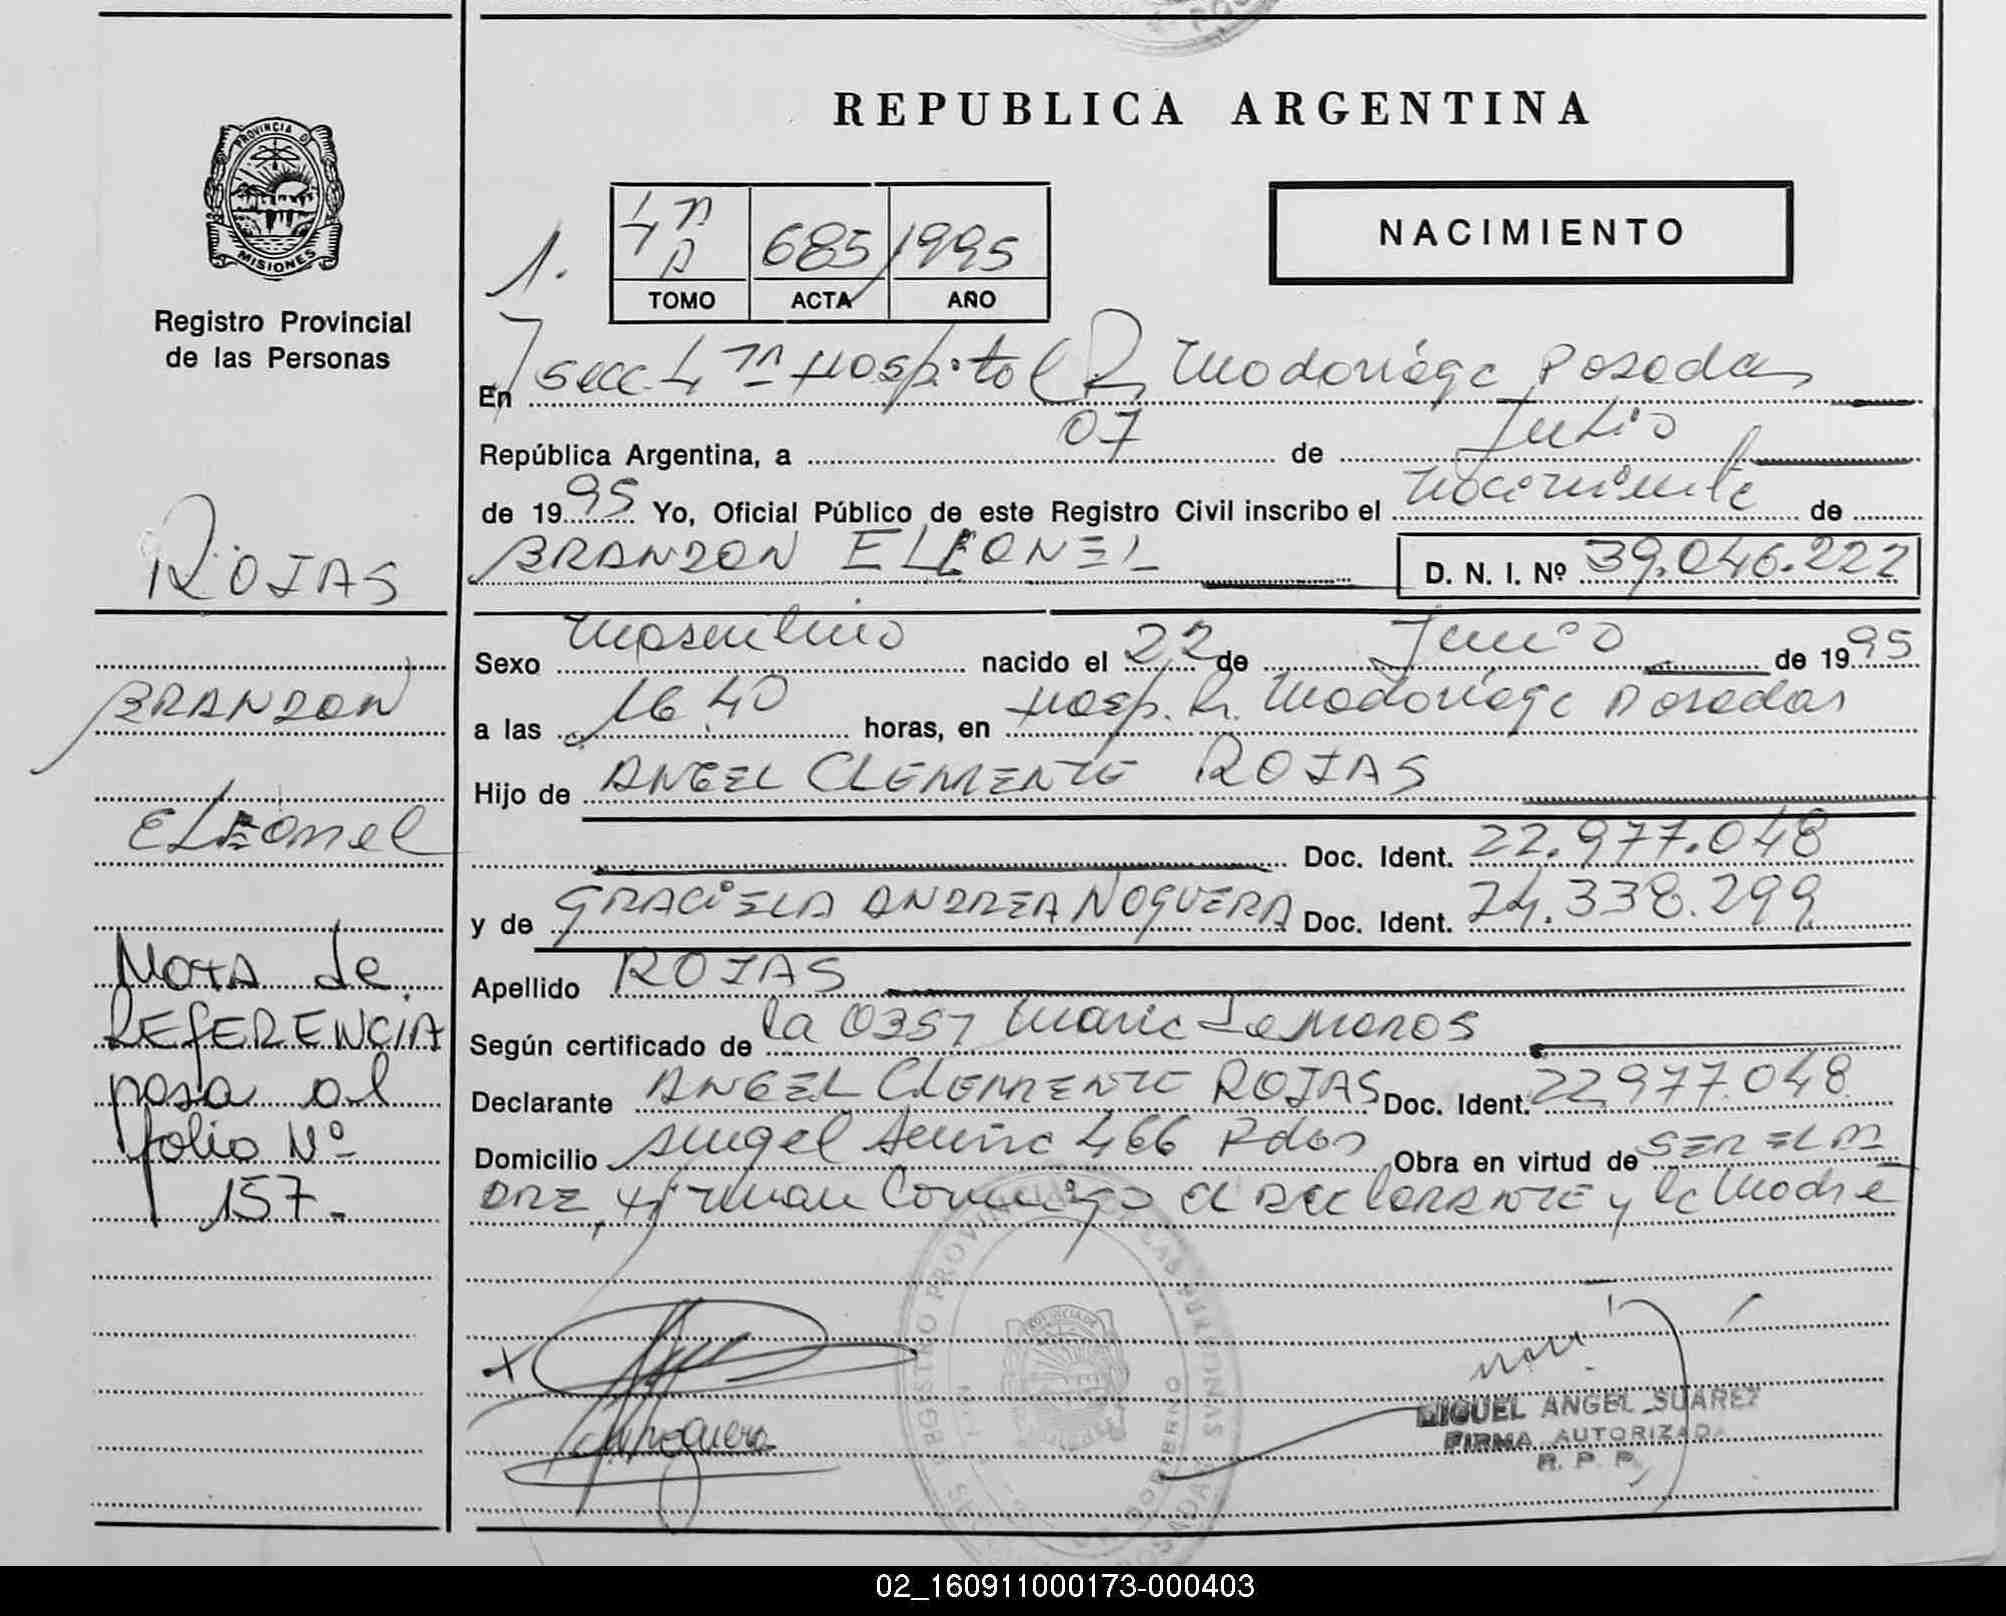 REPUBLICA ARGENTINA
PROVINCIA DE
MISIONES
Registro Provincial
de las Personas
NACIMIENTO
1.
685 1995
TOMO ACTA AÑO
En secc. 4 Hospital R. Madariaga Posadas
República Argentina, a 07 de Julio
de 1995 Yo, Oficial Público de este Registro Civil inscribo el nacimiento de
BRANDON ELEONEL D. N. I. Nº 39.046.222
ROJAS
BRANDON
ELEONEL
NOTA de
REFERENCIA
pasa al
folio Nº
157.-
Sexo masculino nacido el 22 de Junio de 1995
a las 16 40 horas, en Hosp. R. Madariaga Posadas
Hijo de ANGEL CLEMENTE ROJAS
Doc. Ident. 22.977.048
y de GRACIELA ANDREA NOGUERA Doc. Ident. 24.338.299
Apellido ROJAS
Según certificado de la Maria
Declarante ANGEL CLEMENTE ROJAS Doc. Ident. 22977.048
Domicilio Angel Acuña 466 Pdas Obra en virtud de SER EL PA
DRE, firman Conmigo el DECLARANTE y la Madre
Noguera
MIGUEL ANGEL SUAREZ
FIRMA AUTORIZADA
R. P. P.
02_160911000173-000403